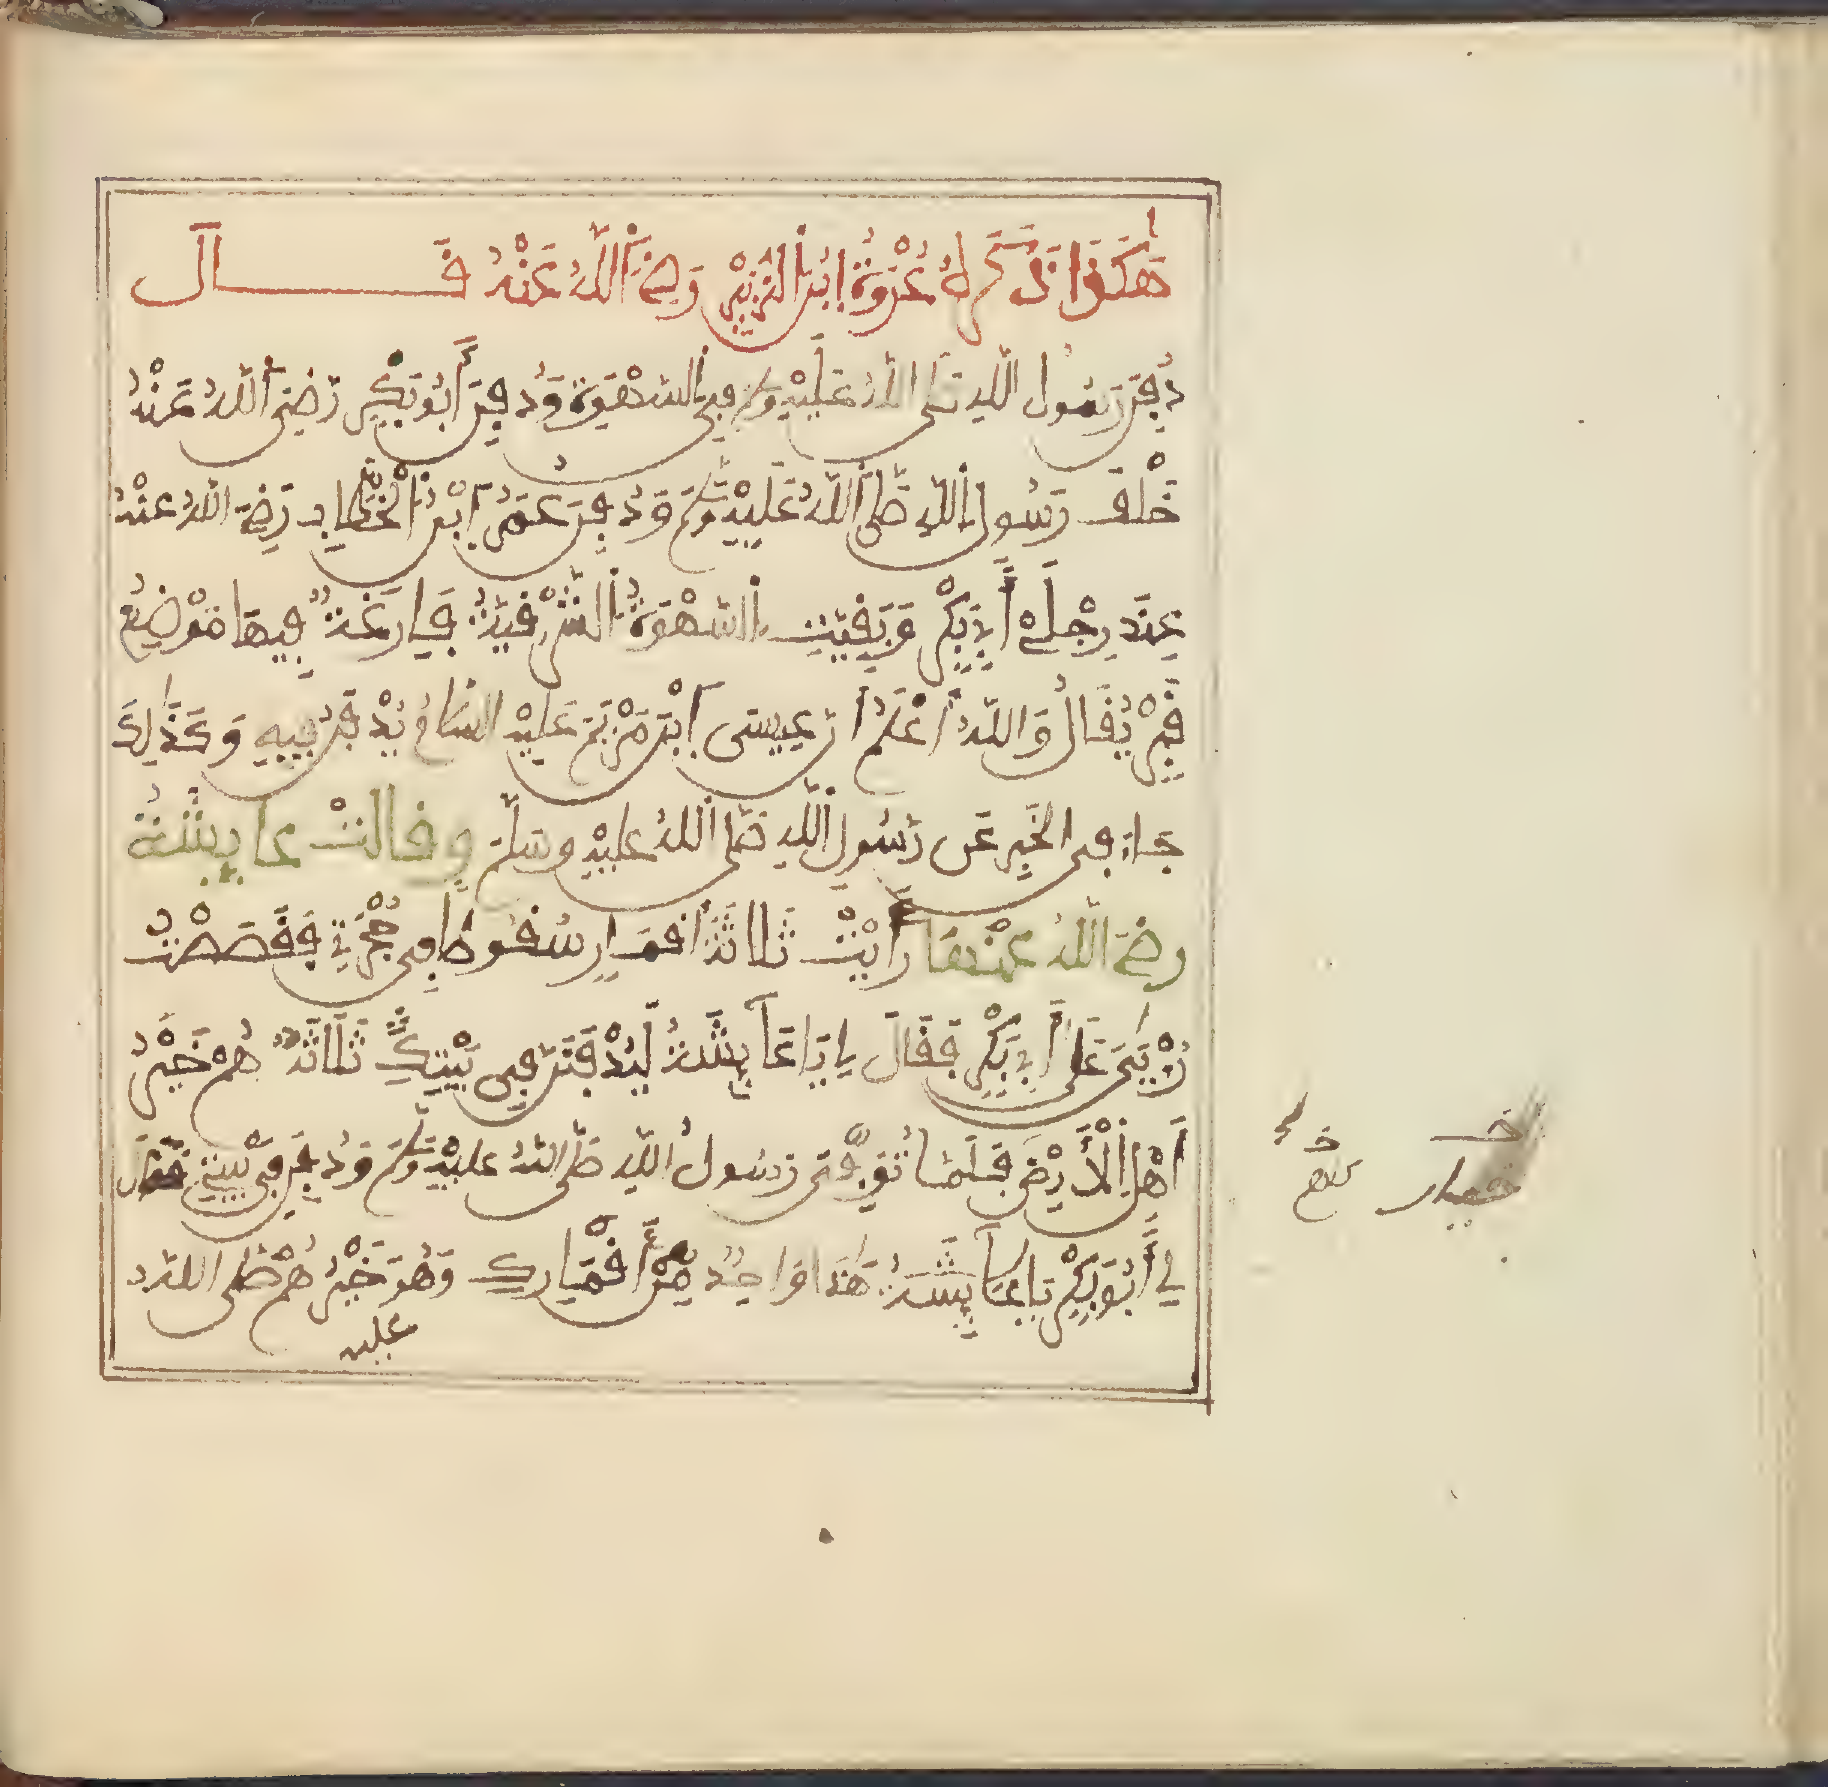 هَكَذَا ذَكَرَهُ عُرْوَةُ ابْنُ الزُّبَيْرِ رَضِيَ اللَّهُ عَنْهُ قَـــالَ
دُفِنَ رَسُولُ اللَّهِ صَلَّى اللَّهُ عَلَيْهِ وَسَلَّمَ فِي السَّهْوَةِ وَدُفِنَ أَبُو بَكْرٍ رَضِيَ اللَّهُ عَنْهُ
خَلْفَ رَسُولِ اللَّهِ صَلَّى اللَّهُ عَلَيْهِ وَسَلَّمَ وَدُفِنَ عُمَرُ ابْنُ الْخَطَّابِ رَضِيَ اللَّهُ عَنْهُ
عِنْدَ رِجْلَيْ أَبِي بَكْرٍ وَبَقِيَتِ السَّهْوَةُ الشَّرْقِيَّةُ فَارِغَةٌ فِيهَا مَوْضِعُ
قَبْرٍ يُقَالُ وَاللَّهُ أَعْلَمُ أَنَّ عِيسَى ابْنَ مَرْيَمَ عَلَيْهِ السَّلَامُ يُدْفَنُ فِيهِ وَكَذَلِكَ
جَاءَ فِي الْخَبَرِ عَنْ رَسُولِ اللَّهِ صَلَّى اللَّهُ عَلَيْهِ وَسَلَّمَ وَقَالَتْ عَائِشَةُ
رَضِيَ اللَّهُ عَنْهَا رَأَيْتُ ثَلَاثَةَ أَقْمَارٍ سُقُوطًا فِي حُجْرَتِي فَقَصَصْتُ
رُؤْيَايَ عَلَى أَبِي بَكْرٍ فَقَالَ يَا عَائِشَةُ لَيُدْفَنَنَّ فِي بَيْتِكِ ثَلَاثَةٌ هُمْ خَيْرُ
أَهْلِ الْأَرْضِ فَلَمَّا تُوُفِّيَ رَسُولُ اللَّهِ صَلَّى اللَّهُ عَلَيْهِ وَسَلَّمَ وَدُفِنَ فِي بَيْتِي فَقَالَ
لِي أَبُو بَكْرٍ يَا عَائِشَةُ هَذَا وَاحِدٌ مِنْ أَقْمَارِكِ وَهُوَ خَيْرُهُمْ صَلَّى اللَّهُ
عليه